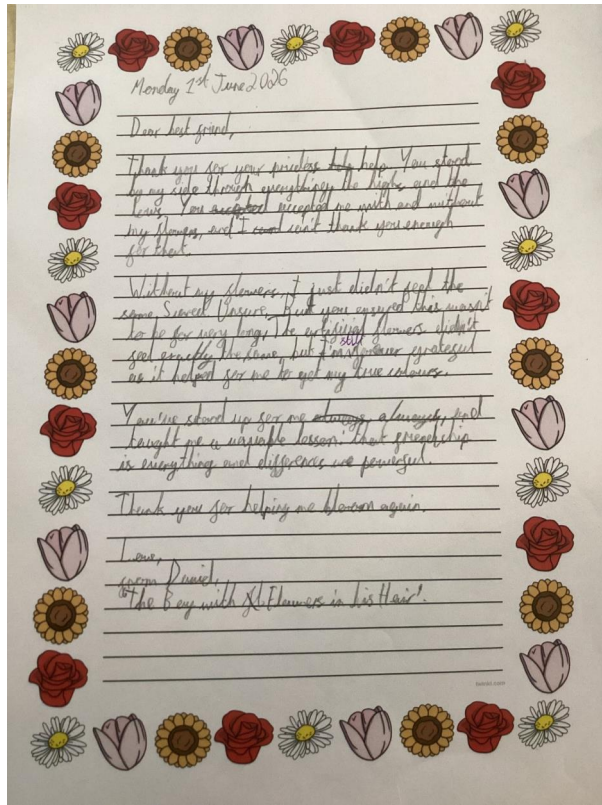 Monday 1st June 2026
Dear best friend,
Thank you for your priceless help. You stood
by my side through everything, the highs and the
lows. You accepted me with and without
my flowers, and I can't thank you enough
for that.
Without my flowers, I just didn't feel the
same. Scared. Unsure. But you ensured this wasn't
to be for very long. The artificial flowers didn't
feel exactly the same, but I'm still forever grateful
as it helped for me to get my true colours.
You've stand up for me always, and
taught me a valuable lesson: that friendship
is everything and differences are powerful.
Thank you for helping me blossom again.
Love,
from Daniel,
'The Boy with Flowers in his Hair'.
twinkl.com